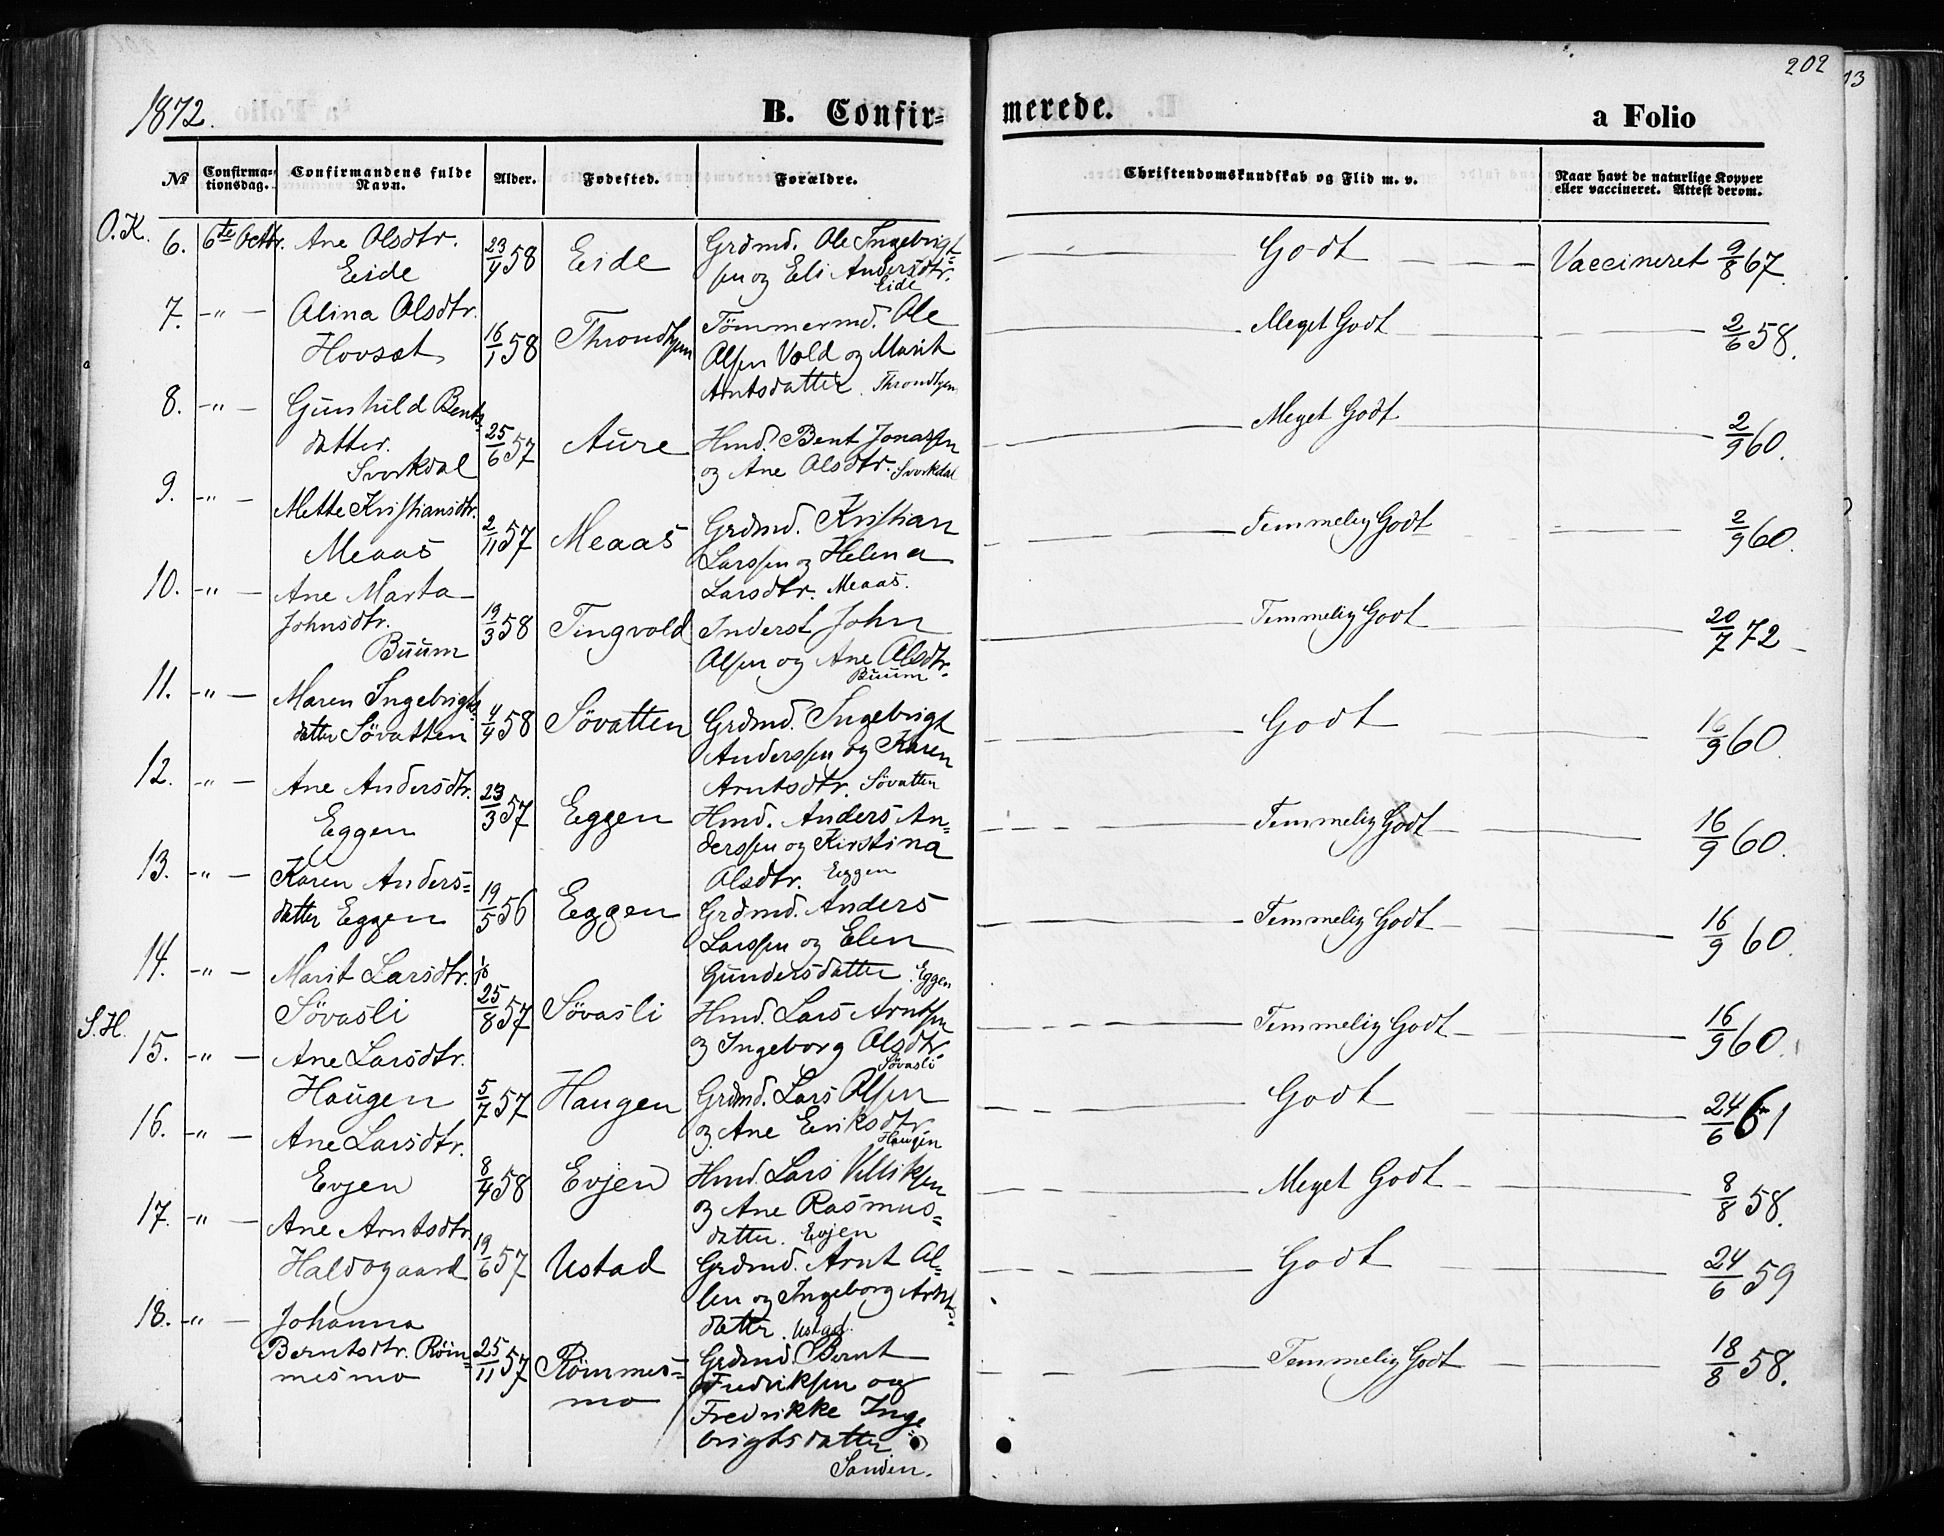 202
13
1872.
B. Confir=
merede.
a Folio
No
Confirma=
tionsdag.
Confirmandens fulde
Navn.
Alder.
Fødested.
Forældre.
Christendomskundskab og Flid m. v.
Naar havt de naturlige Kopper
eller vaccineret. Attest derom.
O.K.
6. 6te Octbr. Ane Olsdtr.
Eide
23/4 58
Eide
Grdmd. Ole Ingebrigt=
sen og Eli Andersdtr.
Eide
Godt
Vaccineret 9/8 67.
7. -"- Alina Olsdtr.
Hovsæt
16/1 58
Throndhjem
Tömmermd. Ole
Olsen Vold og Marit
Arntsdatter. Throndhjem
Meget Godt
2/6 58.
8. -"- Gunhild Bents=
datter.
Svorkdal
25/6 57
Aure
Hmd. Bent Jonassen
og Ane Olsdtr. Svorkdal
Meget Godt
2/9 60.
9. -"- Mette Kristiansdtr.
Meaas
2/11 57
Meaas
Grdmd. Kristian
Larssen og Helena
Larsdtr. Meaas.
Temmelig Godt
2/9 60.
10. -"- Ane Marta
Johnsdtr.
Buum
19/3 58
Tingvold
Inderst John
Olsen og Ane Olsdtr.
Buum
Temmelig Godt
20/7 72
11. -"- Maren Ingebrigts=
datter Søvatten
4/4 58
Søvatten
Grdmd. Ingebrigt
Anderssen og Karen
Arntsdtr. Søvatten
Godt
16/9 60
12. -"- Ane Andersdtr.
Eggen
23/3 57
Eggen
Hmd. Anders An=
derssen og Kirstina
Olsdtr. Eggen
Temmelig Godt
16/9 60.
13. -"- Karen Anders=
datter Eggen
19/5 56
Eggen
Grdmd. Anders
Larssen og Elen
Gundersdatter. Eggen
Temmelig Godt
16/9 60.
14. -"- Marit Larsdtr.
Søvasli
25/8 57
Søvasli
Hmd. Lars Arntsen
og Ingeborg Olsdtr.
Søvasli
Temmelig Godt
16/9 60.
S.H.
15. -"- Ane Larsdtr.
Haugen
5/7 57
Haugen
Grdmd. Lars Olsen
og Ane Eriksdtr.
Haugen
Godt
24/6 61
16. -"- Ane Larsdtr.
Evjen
8/4 58
Evjen
Hmd. Lars Ulriksen
og Ane Rasmus=
datter. Evjen
Meget Godt
8/8 58.
17. -"- Ane Arntsdtr.
Haldogaard
19/6 57
Ustad
Grdmd. Arnt Ol=
sen og Ingeborg Arnts=
datter. Ustad.
Godt
24/6 59
18. -"- Johanna
Berntsdtr. Röm=
mesmo
25/11 57
Römmes=
mo
Grdmd. Bernt
Fredriksen og
Fredrikke Inge
brigtsdatter
Sanden.
Temmelig Godt
18/8 58.